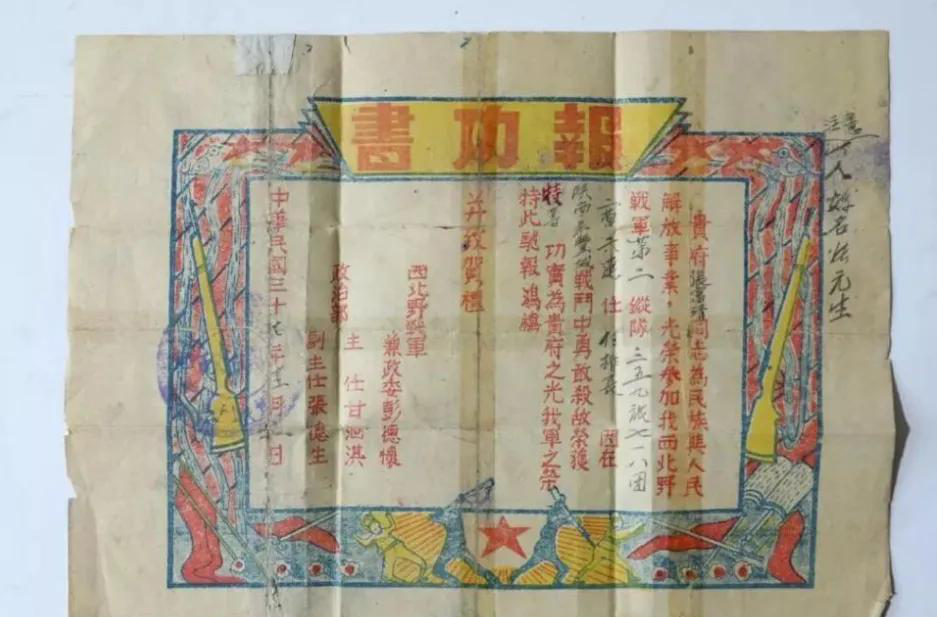 報功書
貴府張富清同志為民族與人民
解放事業，光榮參加我西北野
戰軍第二縱隊三五九旅七一八團
二營六連 任 付排長 因在
陝西永豐城戰鬥中勇敢殺敵榮獲
特等功實為貴府之光我軍之榮
特此馳報鴻禧
并致賀禮
西北野戰軍
兼政委彭德懷
政治部
主任甘泗淇
副主任張德生
中華民國三十七年十二月 日
注意